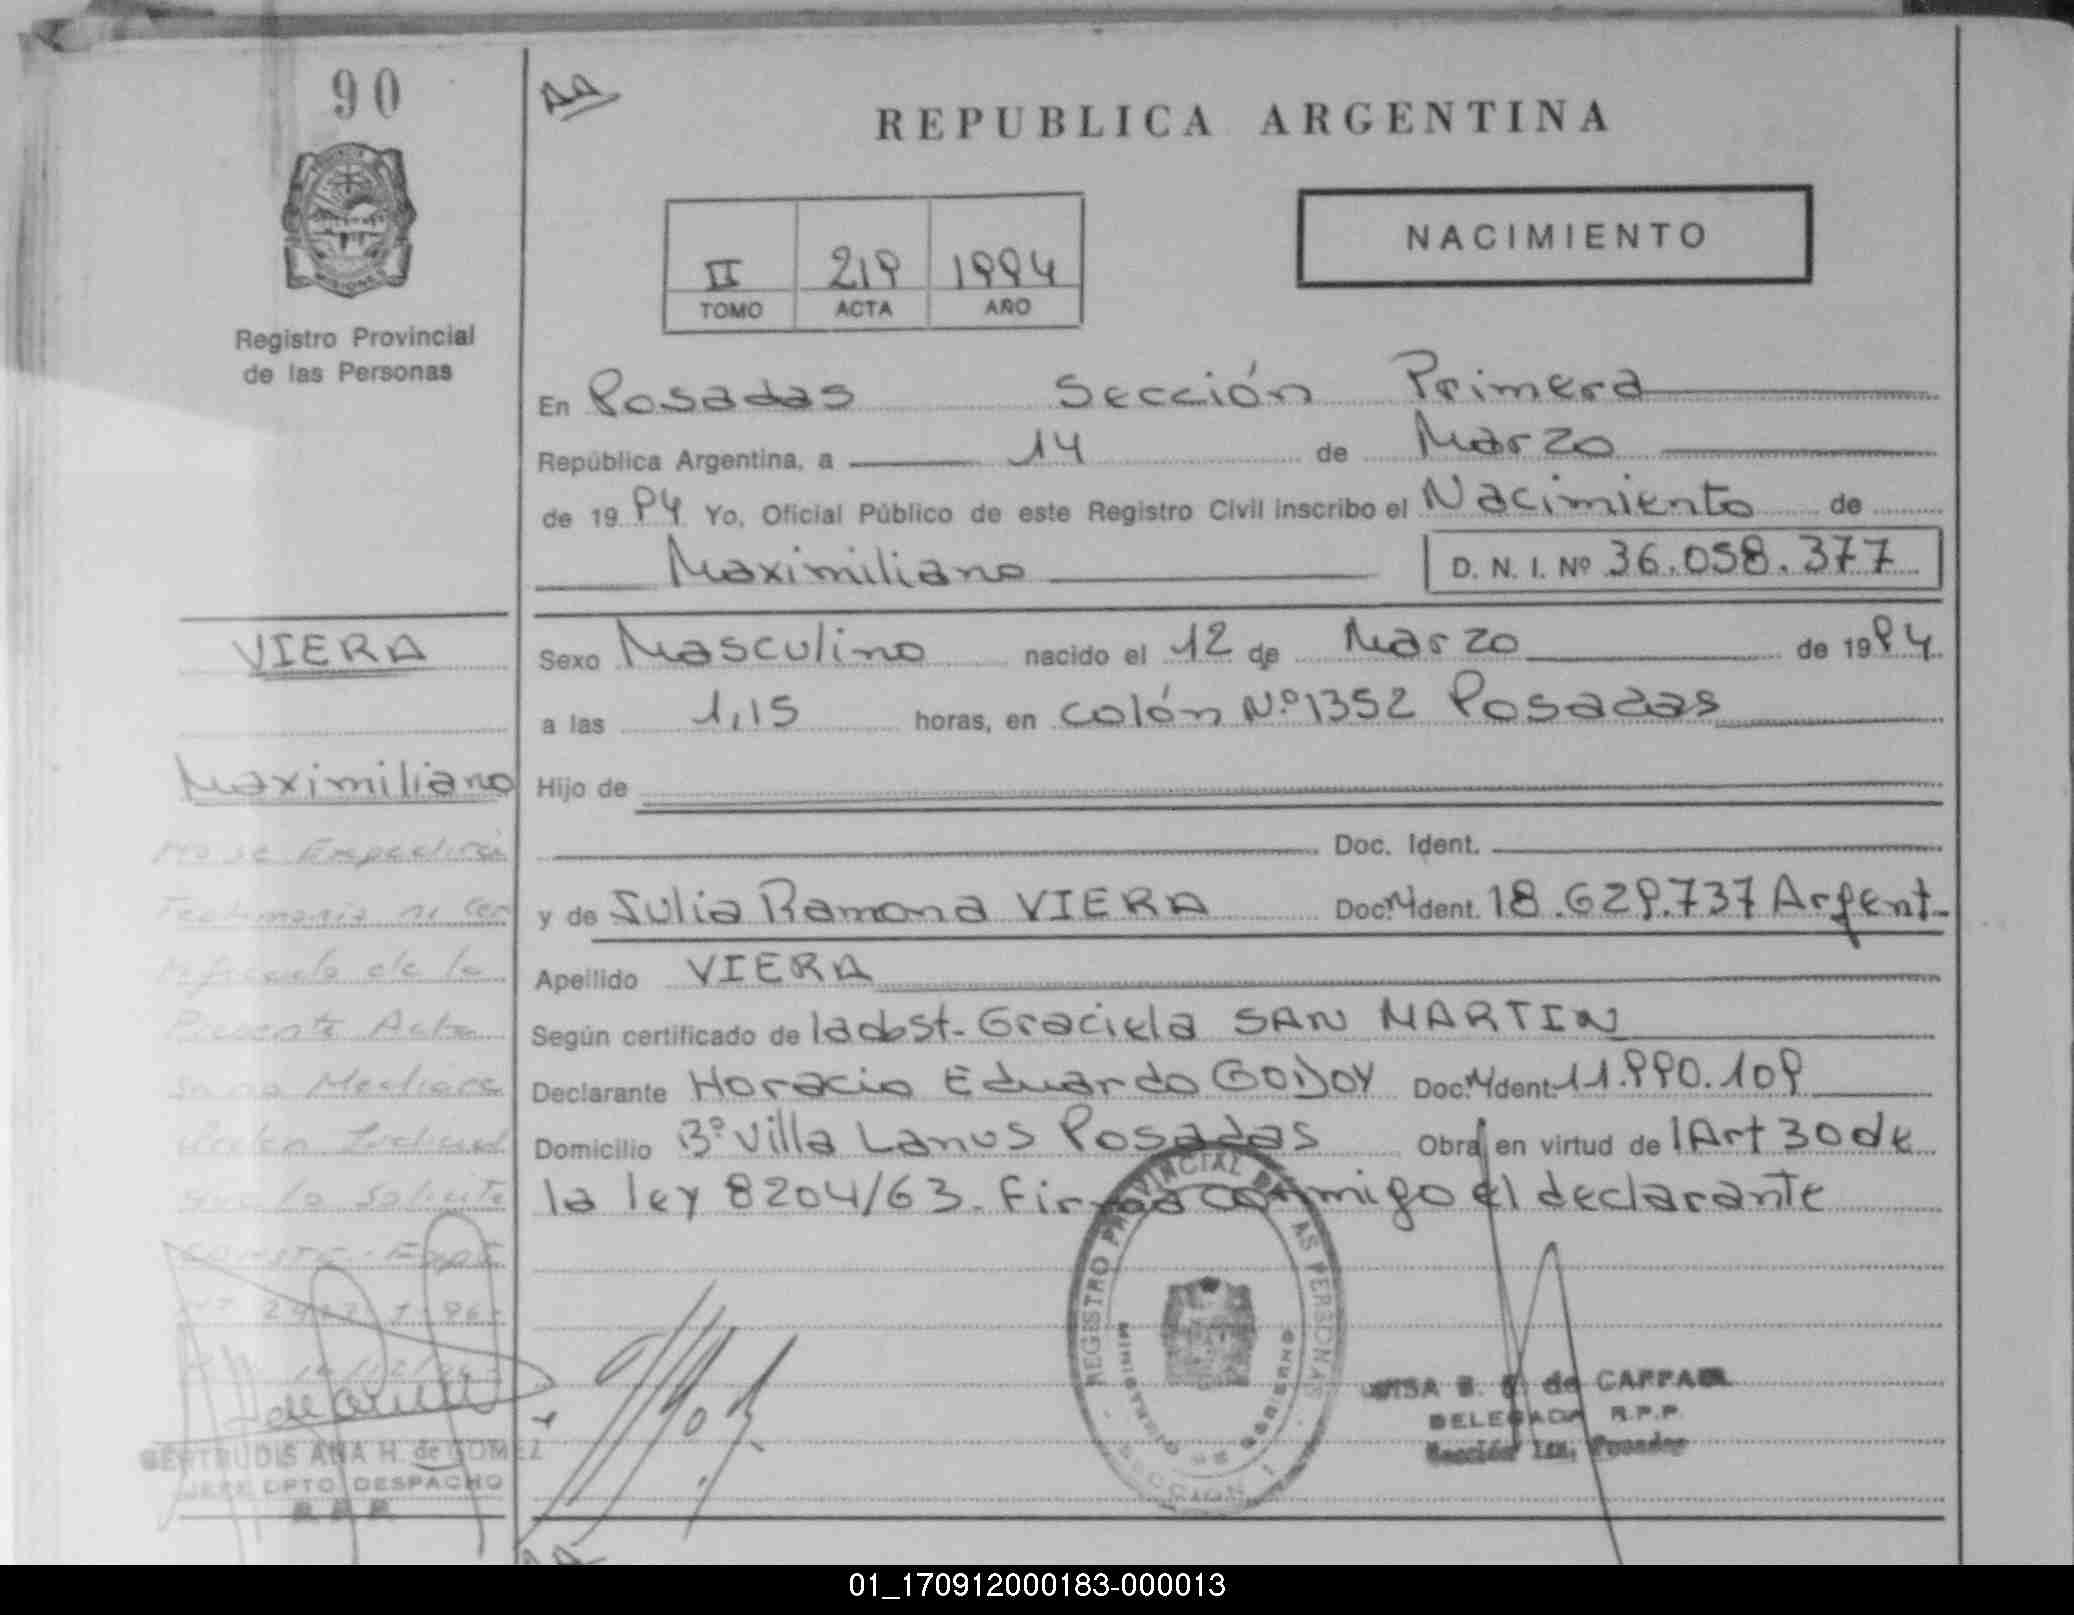 90
REPUBLICA ARGENTINA
NACIMIENTO
II 219 1994
TOMO ACTA AÑO
Registro Provincial
de las Personas
En Posadas Sección Primera
República Argentina, a 14 de Marzo
de 1994 Yo, Oficial Público de este Registro Civil inscribo el Nacimiento de
Maximiliano D. N. I. Nº 36.058.377
VIERA
Maximiliano
No se Expedirá
Testimonio ni Cer
tificado de la
Presente Acta
sino Mediare
Orden Judicial
que lo Solicite
Expte
GERTRUDIS ANA H. de GOMEZ
JEFE DPTO. DESPACHO
Sexo Masculino nacido el 12 de Marzo de 1994
a las 1,15 horas, en Colón Nº 1352 Posadas
Hijo de
Doc. Ident.
y de Julia Ramona VIERA Doc. Ident. 18.629.737 Argent.
Apellido VIERA
Según certificado de la obst. Graciela SAN MARTIN
Declarante Horacio Eduardo GODOY Doc. Ident. 11.990.109
Domicilio Bº Villa Lanus Posadas Obra en virtud de l Art 30 de
la ley 8204/63. Firma conmigo el declarante
REGISTRO PROVINCIAL DE LAS PERSONAS
MINISTERIO DE GOBIERNO
SECCION 1
de CAFFA
DELEGADA R.P.P.
Sección 1ra, Posadas
01_170912000183-000013